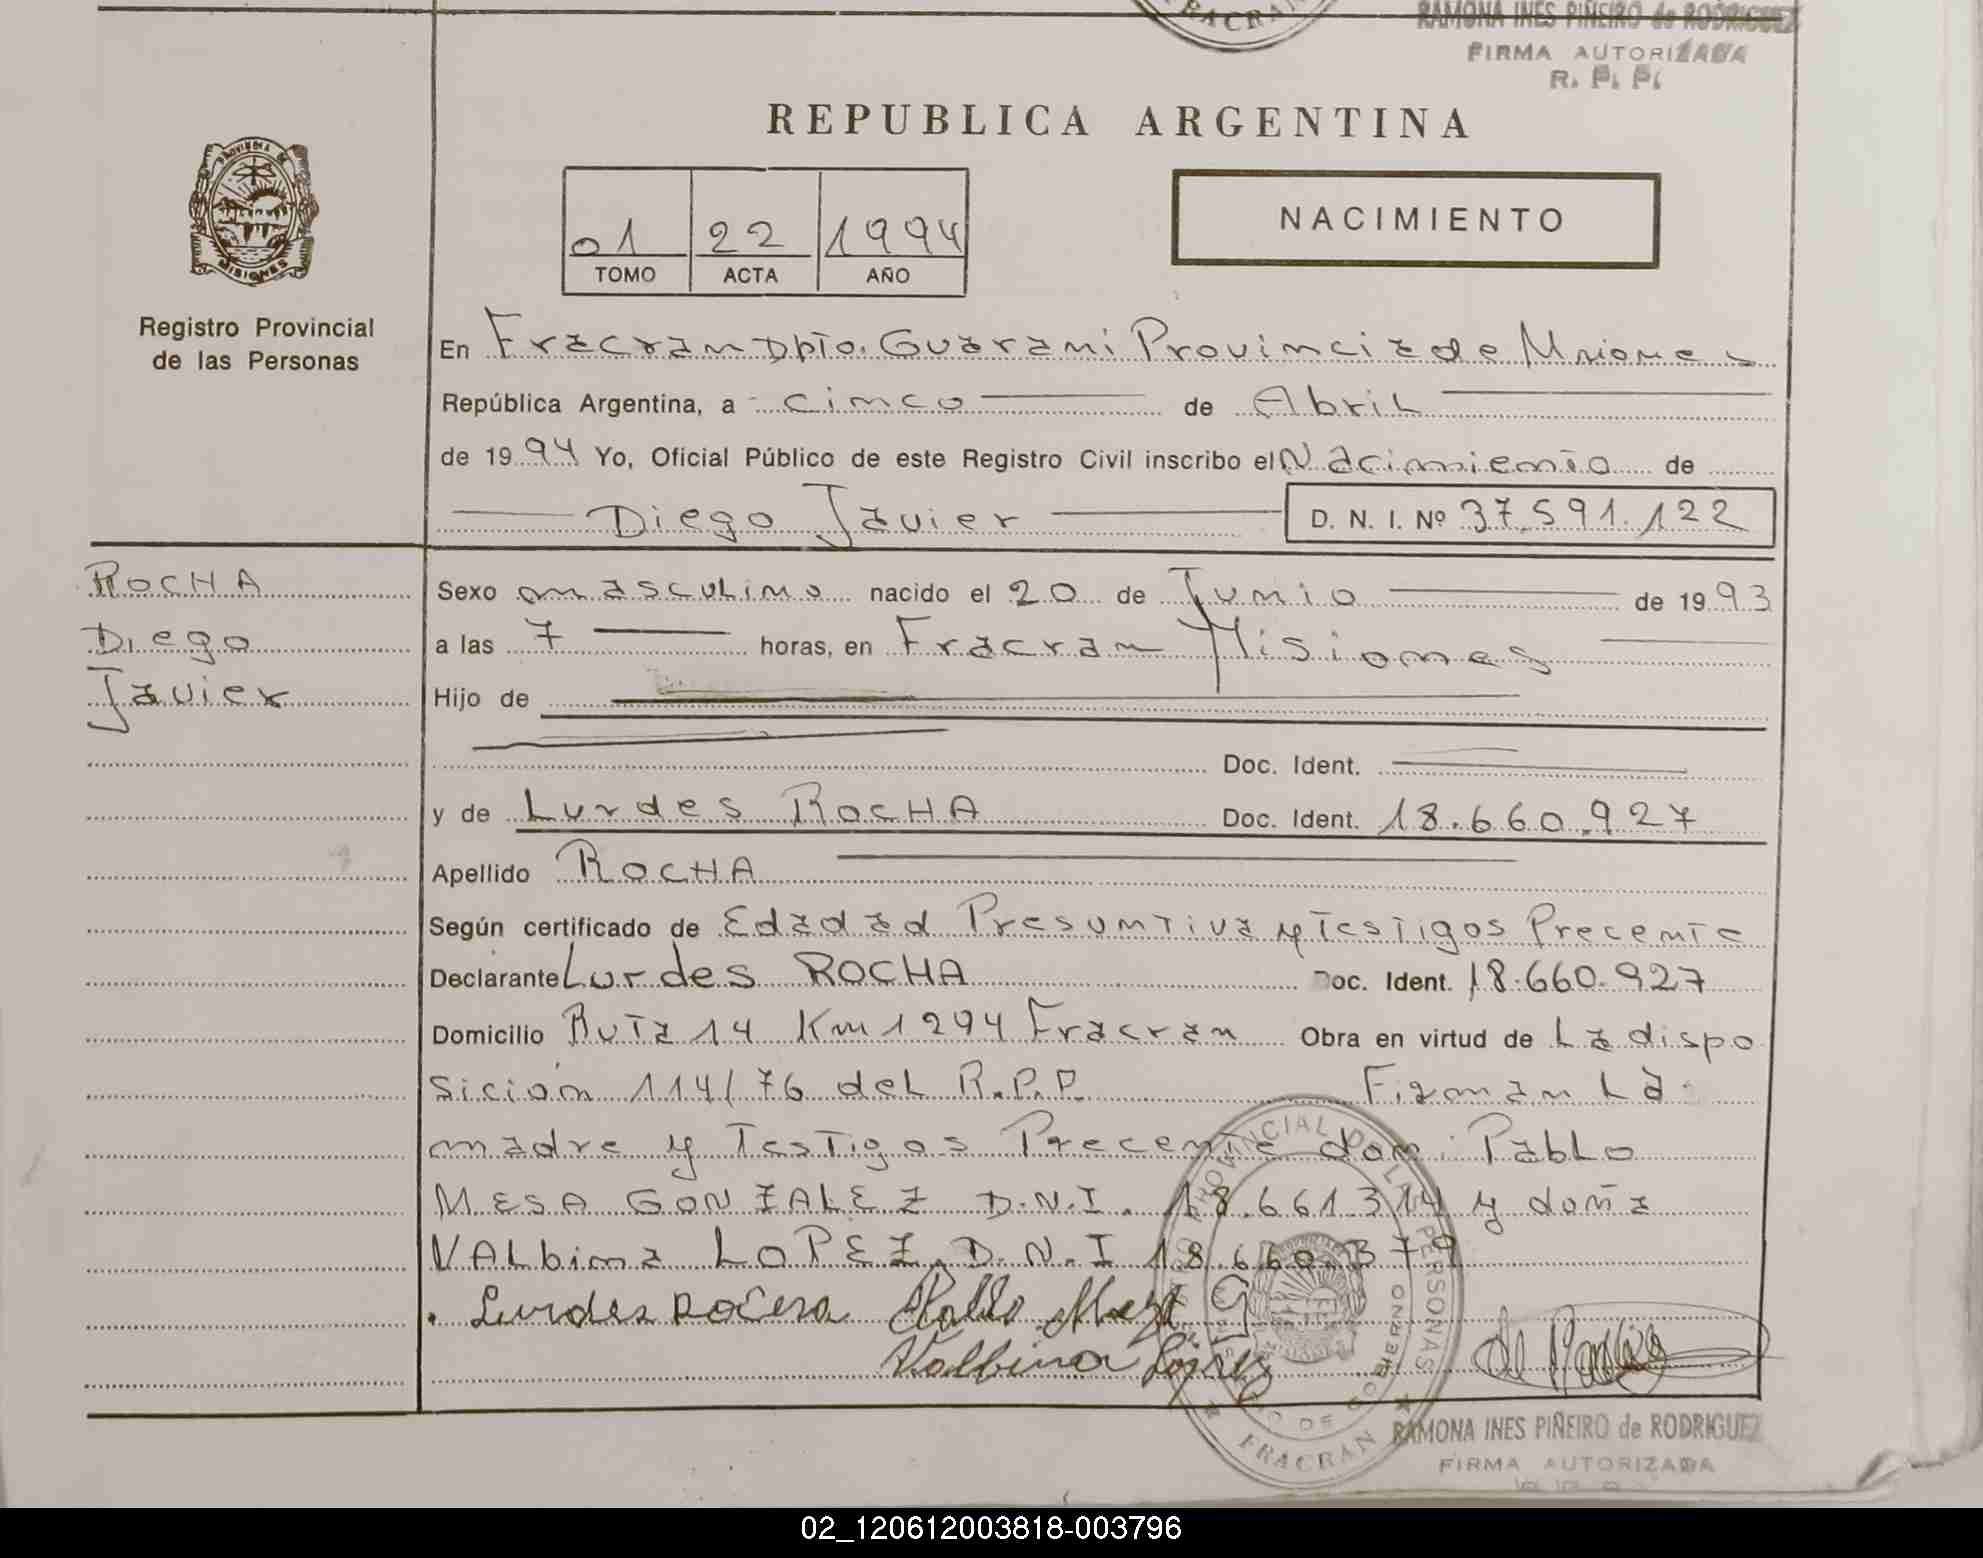 FRACRAN
RAMONA INES PIÑEIRO de RODRIGUEZ
FIRMA AUTORIZADA
R. P. P.
REPUBLICA ARGENTINA
PROVINCIA DE
MISIONES
Registro Provincial
de las Personas
01 22 1994
TOMO ACTA AÑO
NACIMIENTO
En Fracran Dpto. Guarani Provincia de Misiones
República Argentina, a cinco de Abril
de 1994 Yo, Oficial Público de este Registro Civil inscribo el Nacimiento de
Diego Javier D. N. I. Nº 37.591.122
ROCHA
Diego
Javier
Sexo masculino nacido el 20 de Junio de 1993
a las 7 horas, en Fracran Misiones
Hijo de
Doc. Ident.
y de Lurdes ROCHA Doc. Ident. 18.660.927
Apellido ROCHA
Según certificado de Edad ad Presuntiva y Testigos Precente
Declarante Lurdes ROCHA Doc. Ident. 18.660.927
Domicilio Ruta 14 Km 1294 Fracran Obra en virtud de La dispo
sición 114/76 del R.P.P. Firman La
madre y Testigos Precente don: Pablo
MESA GONZALEZ D.N.I. 18.661.314 y doña
VALbina LOPEZ. D.N.I 18.660.379
Lurdes Pablo Meza G
Valbina López
PROVINCIAL DE LAS PERSONAS
DE GOBIERNO
FRACRAN
RAMONA INES PIÑEIRO de RODRIGUEZ
FIRMA AUTORIZADA
02_120612003818-003796